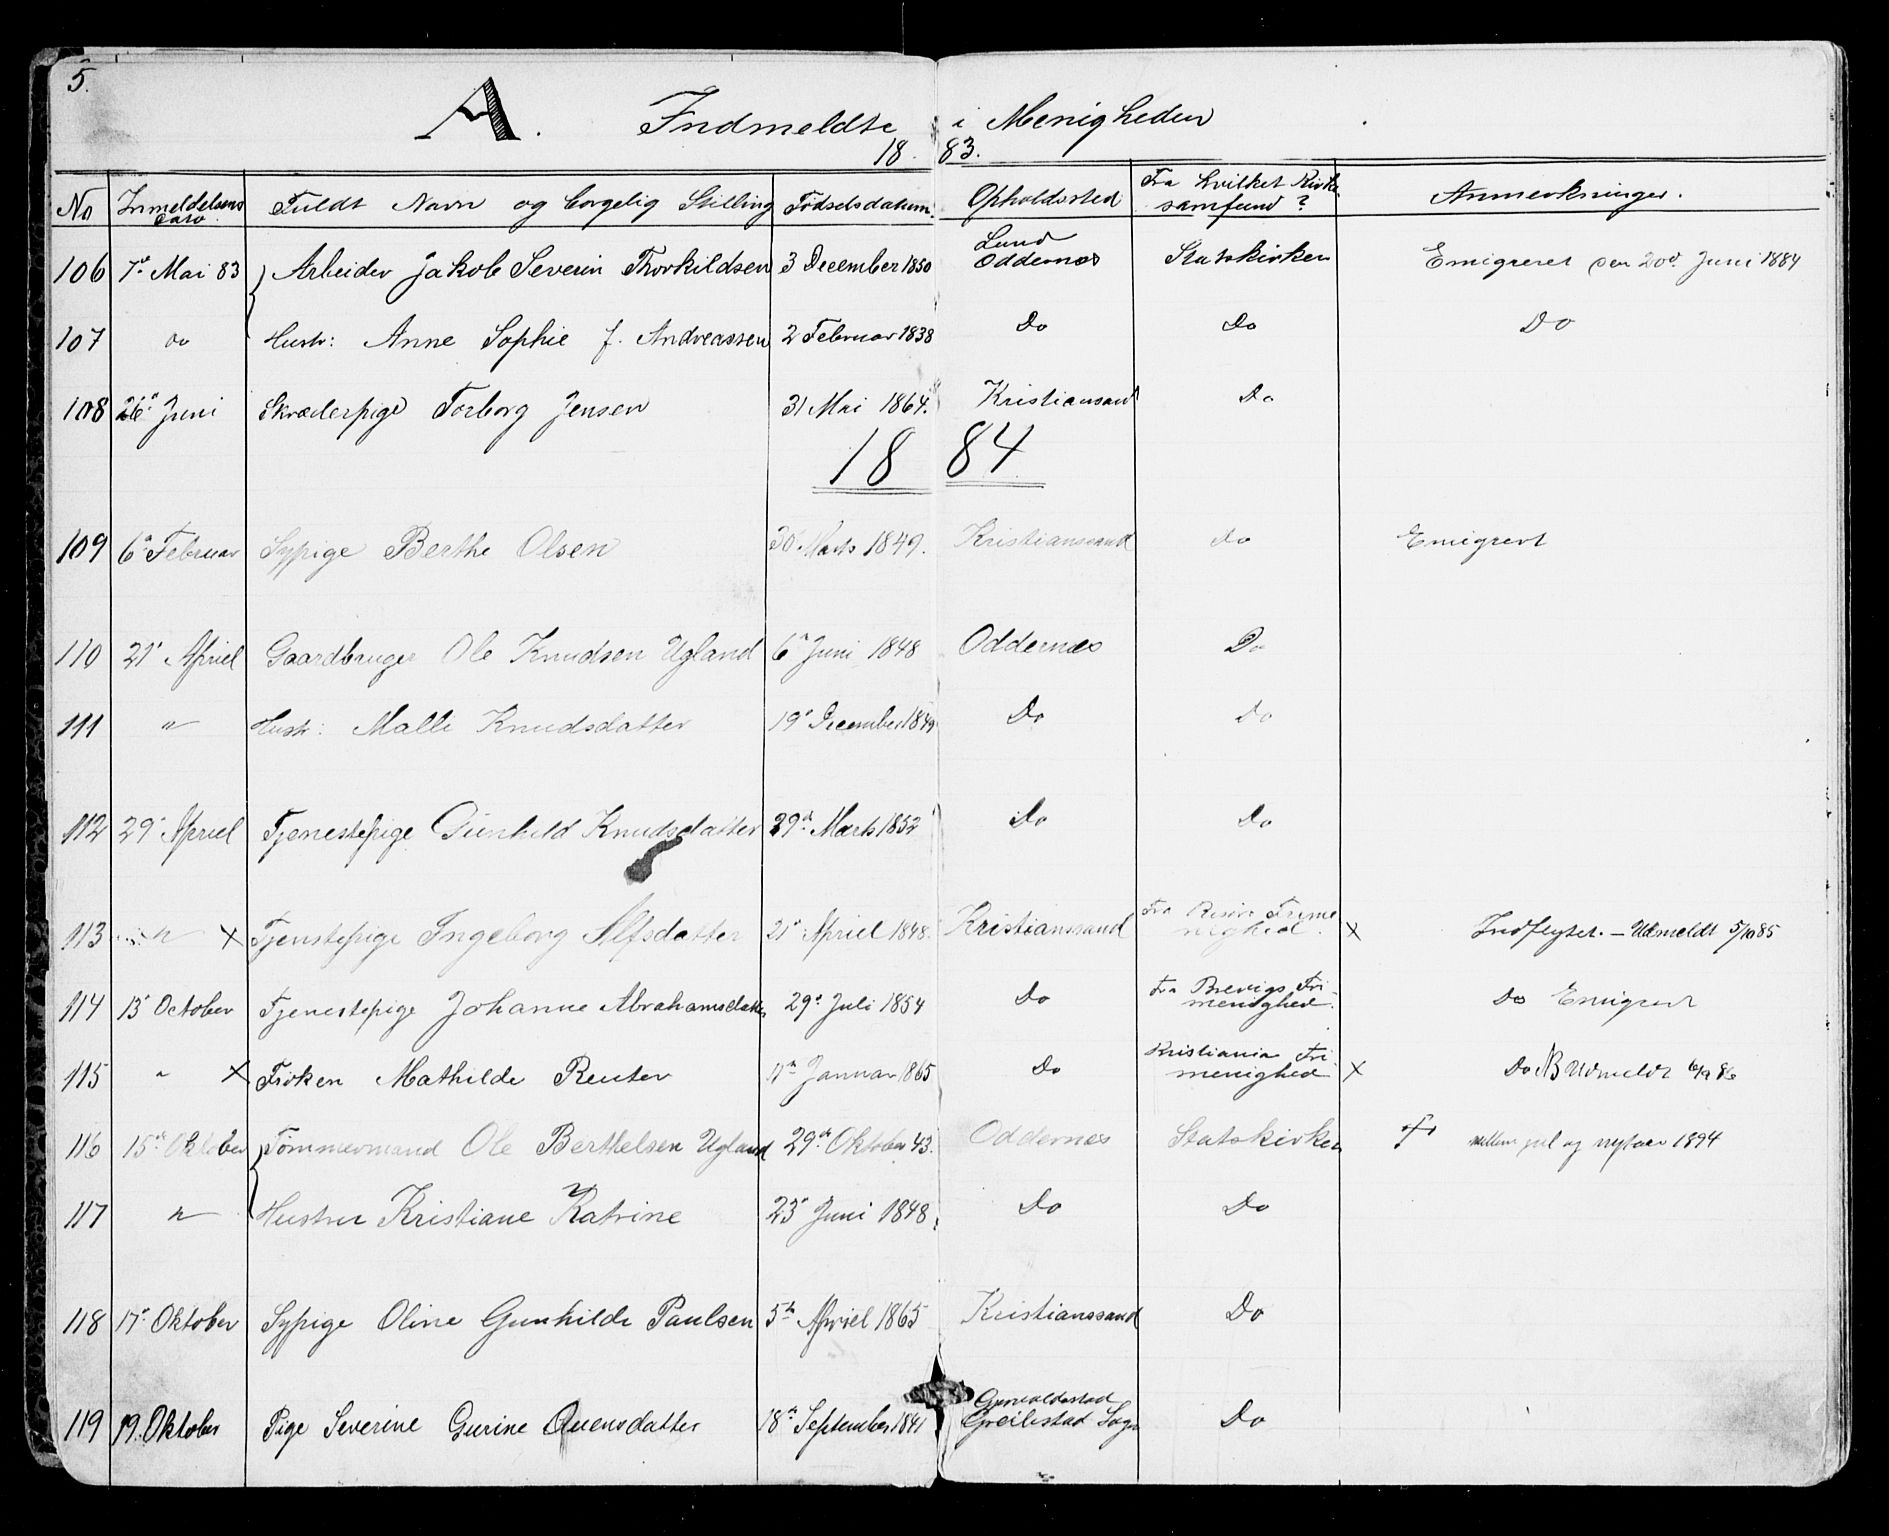 5.
A. Indmeldte i Menigheden
18 83.
No Inmeldelsens Dato. Fuldt Navn og borgelig Stilling Fødselsdatum. Opholdssted Fra hvilket Kirke samfund? Anmerkninger.
106 7de Mai 83 Arbeider Jakob Severin Thorkildsen 3 December 1850 Lund Oddernæs Statskirken Emigreret den 20de Juni 1884
107 do Hustr: Anne Sophie f. Andreassen 2 Februar 1838 Do Do Do
108 26de Juni Skræderpige Torborg Jensen 31 Mai 1864. Kristiansand Do
1884
109 6te Februar Sypige Berthe Olsen 30 Marts 1849. Kristianssand do Emigrert
110 21de Apriel Gaardbruger Ole Knudsen Ugland 6te Juni 1848 Oddernæs Do
111 " Hustr: Malli Knudsdatter 19de December 1849 Do Do
112 29de Apriel Tjenestepige Gunhild Knudsdatter 29de Marts 1852 Do Do
113 " x Tjenstepige Ingeborg Alfsdatter 21de Apriel 1848. Kristianssand Fra Risør Frime nighed. x Indflyttet. - Udmeldt 5/10 85
114 13de October Tjenestepige Johanne Abrahamsdatter 29de Juli 1854 Do Fra Brevigs Fri- menighed. Do Emigrert
115 " x Frøken Mathilde Reuter 11te Januar 1865 Do Kristiania Fri menighed x Do NB Udmeldt 6/9 86
116 15de Oktober Tømmermand Ole Berthelsen Ugland 29de Oktober 43. Oddernæs Statskirken † mellem jul og nytaar 1894
117 " Hustru Kristiane Katrine 23de Juni 1848. Do Do
118 17de Oktober Sypige Oline Gunhilde Paulsen 5te Apriel 1865 Kristianssand Do
119 19. Oktober Pige Severine Gurine Ouensdatter 18de September 1841 Greilestad Sogn Do